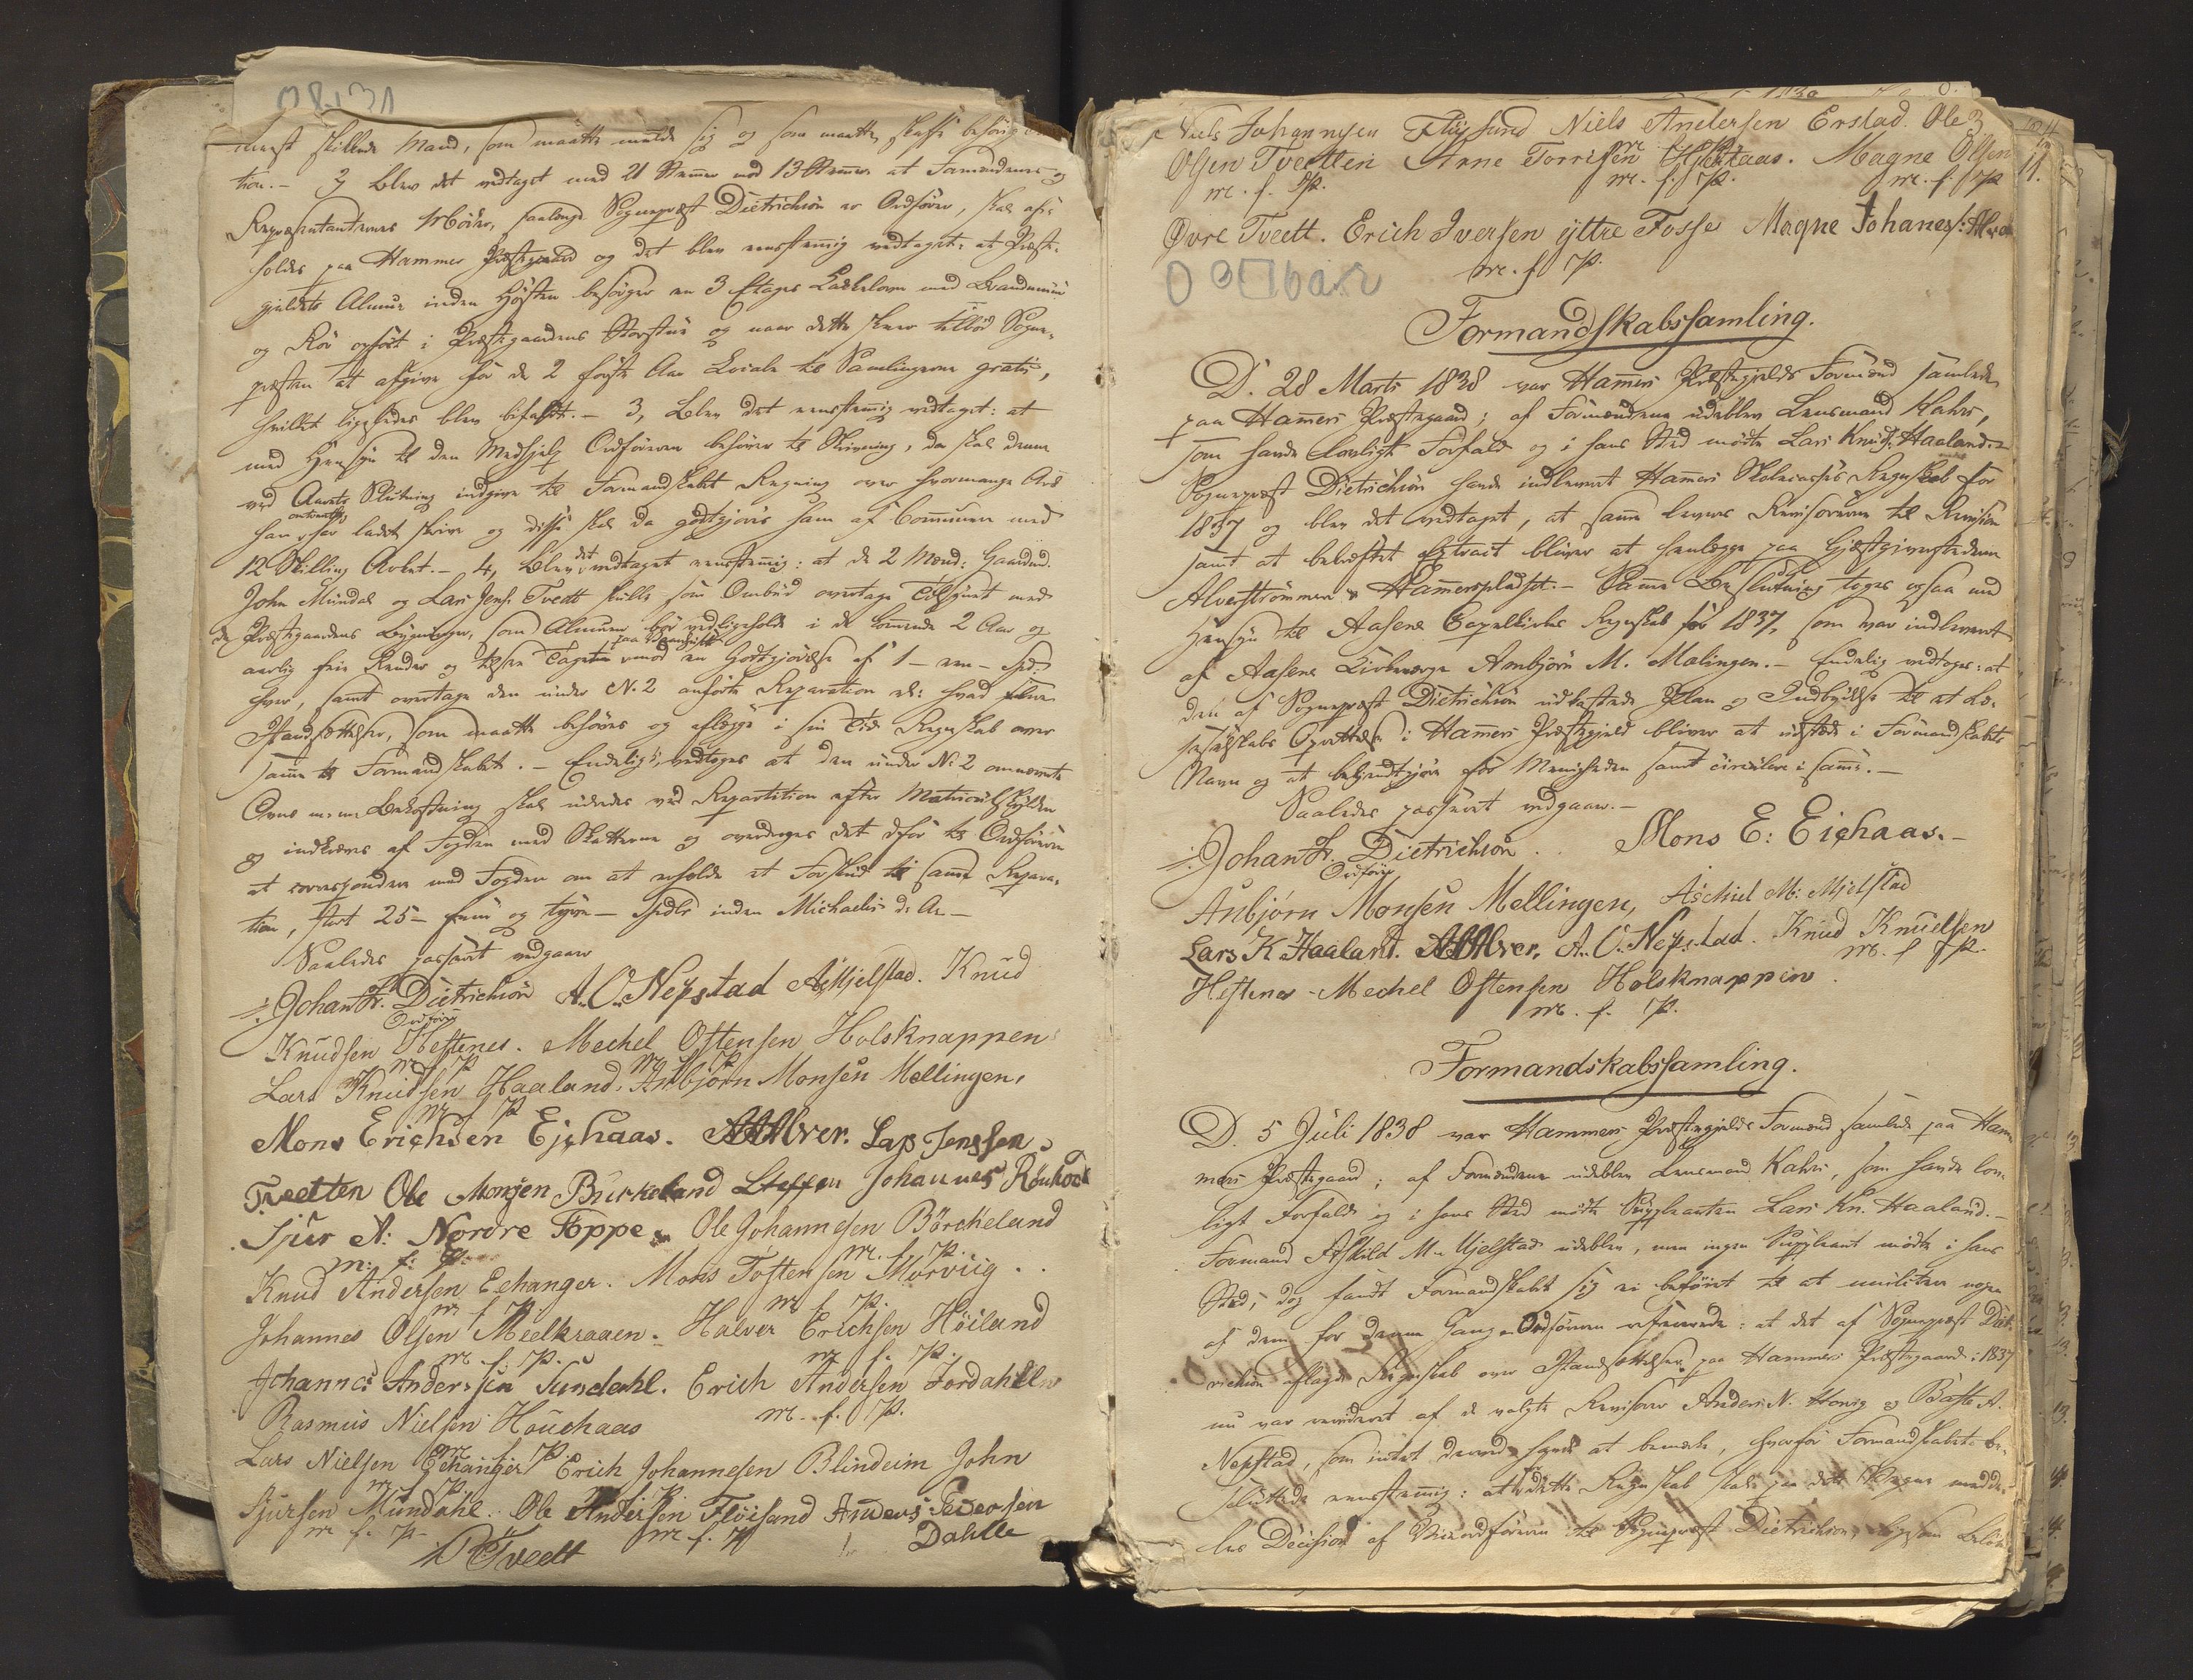 mest skillede Mand, som maatte melde sig og som maatte skaffe
tion. - 2, Blev det vedtaget med 21 Stemmer mod 13 Stemmer at Formændenes og
Repræsentanternes Möder, saalænge Sognepræst Dietrichson er Ordförer, skal
holdes paa Hammer Præstegaard og det blev eenstemig vedtaget: at Præste-
gjeldets Almue inden Hösten besörger en 3 Etages Kakkelovn med
og Rör opsat i Præstegaardens Storstue og naar dette skeer tilböd Sogne-
præsten at afgive for de 2 förste Aar Locale til Samlingerne gratis,
hvilket ligeledes blev - 3, Blev det eenstemig vedtaget: at
med Hensyn til den Medhjelp Ordföreren behöver til Skrivning, da skal denne
ved Aarets Slutning indgive til Formandskabet Regning over hvormange Ark
han har ladet skrive og disse skal da godtgjöres ham af Communen med
12 Skilling Arket. - 4, Blev det vedtaget eenstemig: at de 2 Mænd: Gaardmd.
John Mündal og Lars Jens. Tvedt skulle som Ombud overtage Tilsynet med
de Præstegaardens Bygninger, som Almuen bör vedligeholde i de kommende 2 Aar og
aarlig Render og Tagene mod en Godtgjörelse af 1 - een - Spd.
hver, samt overtage den under No. 2 anförte Reparation
Istandsættelser, som maatte behöves og aflægge i sin Tid Regnskab over
samme til Formandskabet. - Endelig vedtoges at den under No. 2 omnævnte
Ovns m. m. Bekostning skal udredes ved Repartition efter Matriculskylden
og indkræves af Fogden med Skatterne og overdroges det til Ordföreren
at correspondere med Fogden om at erholde et Forskud til samme Repara-
tion, stort 25 - fem og tyve - Spdlr inden Michaelis d. A. -
Saaledes passeret vedgaaer
Johan Fr. Dietrichson A. O. Nepstad A. Mjelstad. Knud
Ordförer
Knudsen Hestenes. Mechel Ostensen Holsknappen
m f P
Lars Knudsen Haaland. Anbjörn Monsen Mellingen,
m f P
Mons Erichsen Ejchaas. AAAlver. Lars Jenssen
Tveetten Ole Monsen Burkeland Steffen Johannes Rönhovd
Sjur A: Nordre Toppe Ole Johannesen Börcheland
m: f: P. m. f. P.
Knud Andersen Echanger. Mons Tostensen Morviig.
m f P. m f P.
Johannes Olsen Meelkraaen. Halver Erichsen Höiland
m f. P. m f. P.
Johannes Andersen Sundahl. Erich Andersen Jordahlen
Rasmus Nielsen Houchaas m. f. P.
Lars Nielsen Echanger Erich Johannesen Blindeim John
Sjursen Mundahl. Ole Andersen Flöisand Anders Pedersen
m f. P. m f. P. Dahlle
Tvedt
Niels Johannesen Flöysand Niels Andersen Erstad. Ole
Olsen Tveetten Arne Torrisen Hjertaas. Magne Olsen
m. f. P. m. f. P. m. f. P 11.
Øvre Tveett. Erich Iversen yttre Fosse Magne Johanes: Alver
m. f. P.
Formandskabssamling.
D. 28 Marts 1838 var Hamers Præstegjelds Formænd samlede
paa Hamers Præstegaard; af Formændene udeblev Lensmand Kahrs,
som havde lovligt Forfald og i hans Sted mödte Lars Knuds. Haaland.
Sognepræst Dietrichson havde indleveret Hamers Skolecasses Regnskab for
1837 og blev det vedtaget, at samme leveres Revisorerne til Revision
samt at bekræftet Extract bliver at henlægge paa Gjestgiverstederne
Alverströmmen & Hammerspladset. - Samme Beslutning toges ogsaa med
Hensyn til Aasene Capelkirkes Regnskab for 1837, som var indleveret
af Aasene Kirkeværge Anbjörn M. Malingen. - Endelig vedtoges: at
den af Sognepræst Dietrichson udkastede Plan og Indbydelse til et Læ-
seselskabs Oprettelse i Hamers Præstegjeld bliver at udstæde i Formandskabets
Navn og at bekjendtgjöre for Menigheden samt circulere i samme. -
Saaledes passeret vedgaaer. -
Johan Fr. Dietrichson. Mons E: Eichaas. -
Ordförer
Anbjörn Monsen Mellingen, Aschiel M: Mjelstad
Lars K Haaland. AAAlver. A. O. Nepstad. Knud Knudsen
m. f P.
Hestenes - Mechel Ostensen Holsknappen.
m. f. P.
Formandskabssamling.
D. 5 Juli 1838 var Hammers Præstegjelds Formænd samlede paa Ham-
mers Præstegaard; af Formændene udeblev Lensmand Kahrs, som havde lov-
ligt Forfald og i hans Sted mödte Suppleanten Lars Kn. Haaland. -
Formand Askild M. Mjelstad udeblev, men ingen Suppleant mödte i hans
Sted; dog fandt Formandskabet sig ei beföiet til at mulctere nogen
af dem for denne Gang. Ordföreren refererede: at det af Sognepræst Diet-
richson aflagde Regnskab over Istandsættelser paa Hammers Præstegaard i 1837
nu var revideret af de valgte Revisorer Anders N. Hovig og Baste A.
Nepstad, som intet derved havde at bemærke, hvorfor Formandskabet be-
sluttede eenstemig: at dette Regnskab skal paa det meddeles
Decision af Viceordföreren til Sognepræst Dietrichson,